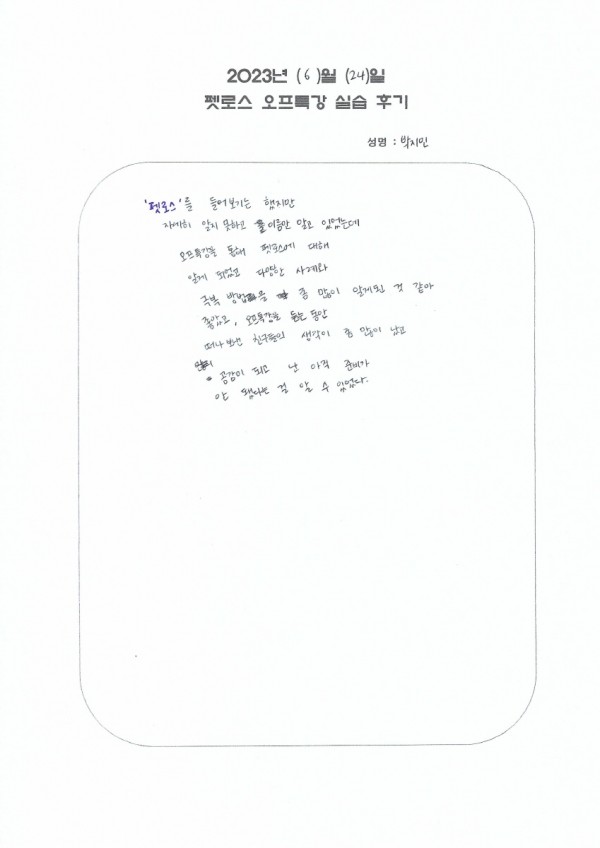 2023년 (6)월 (24)일
펫로스 오프특강 실습 후기
성명 : 박지민
'펫로스'를 들어보기는 했지만
자세히 알지 못하고 이름만 알고 있었는데
오프특강을 통해 펫로스에 대해
알게 되었고 다양한 사례와
극복 방법을 좀 많이 알게된 것 같아
좋았고, 오프특강을 듣는 동안
떠나 보낸 친구들의 생각이 좀 많이 났고
공감이 되고 난 아직 준비가
안 됐다는 걸 알 수 있었다.